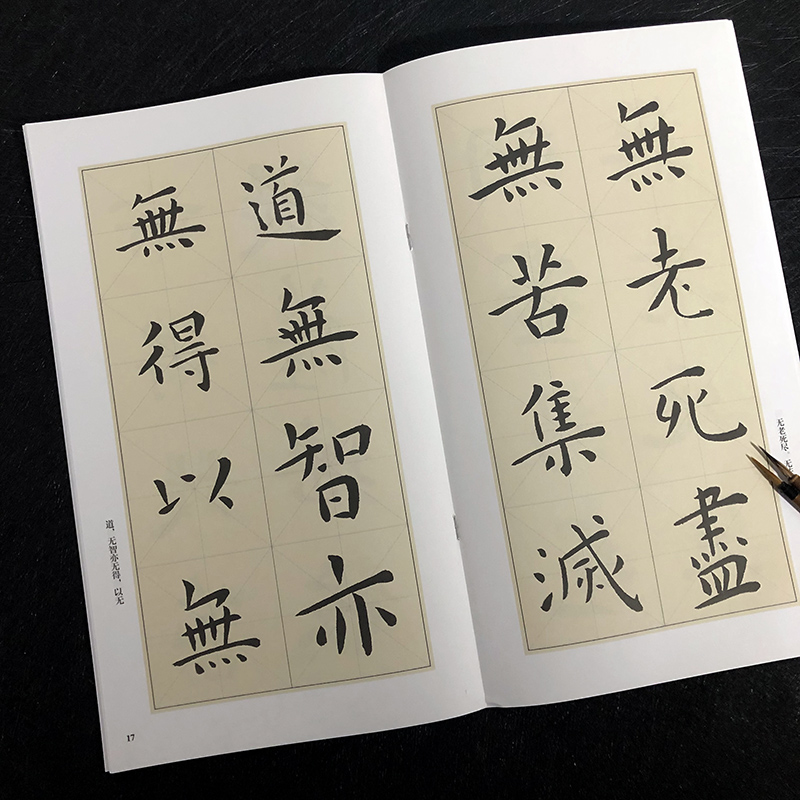 無老死盡
無苦集滅
无老死尽，无
道無智亦
無得以無
道，无智亦无得，以无
17